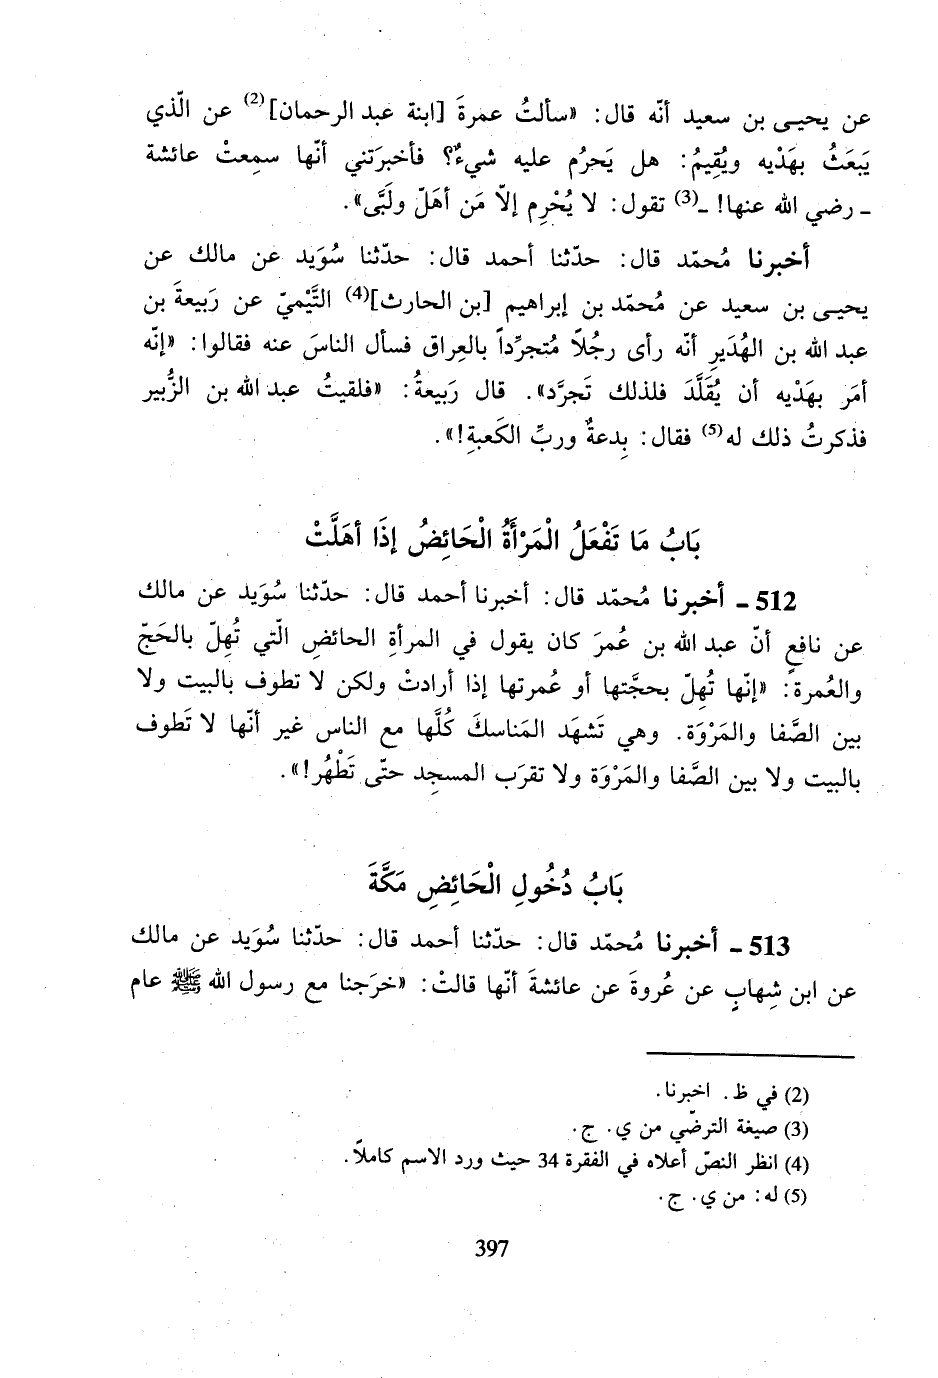 عن يحيى بن سعيد أنّه قال: «سألتُ عمرةَ [ابنة عبد الرحمان](2) عن الّذي
يَبعَثُ بهَدْيه ويُقِيمُ: هل يَحرُم عليه شيءٌ؟ فأخبرَتني أنّها سمِعتْ عائشة
ـ رضي الله عنها! ـ(3) تقول: لا يُحْرِم إلاّ مَن أهَلّ ولَبَّى».
أخبرنا مُحمّد قال: حدّثنا أحمد قال: حدّثنا سُوَيد عن مالك عن
يحيى بن سعيد عن مُحمّد بن إبراهيم [بن الحارث](4) التَّيْميّ عن رَبيعةَ بن
عبد الله بن الهُدَيرِ أنّه رأى رجُلاً مُتجرِّداً بالعِراق فسأل الناسَ عنه فقالوا: «إنّه
أمَر بهَدْيه أن يُقَلَّدَ فلذلك تَجرَّد». قال رَبيعةُ: «فلقيتُ عبد الله بن الزُّبير
فذكرتُ ذلك له(5) فقال: بِدعةٌ وربِّ الكَعبةِ!».
بَابُ مَا تَفْعَلُ الْمَرْأَةُ الْحَائِضُ إِذَا أهَلَّتْ
512 ـ أخبرنا مُحمّد قال: أخبرنا أحمد قال: حدّثنا سُوَيد عن مالك
عن نافعٍ أنّ عبد الله بن عُمرَ كان يقول في المرأةِ الحائضِ الّتي تُهِلّ بالحَجّ
والعُمرة: «إنّها تُهِلّ بحجَّتها أو عُمرتها إذا أرادتْ ولكن لا تطوف بالبيت ولا
بين الصَّفا والمَرْوَة. وهي تَشهَد المَناسكَ كُلَّها مع الناس غير أنّها لا تَطوف
بالبيت ولا بين الصَّفا والمَرْوَة ولا تقرَب المسجِد حتّى تَطْهُر!».
بَابُ دُخُولِ الْحَائِضِ مَكَّةَ
513 ـ أخبرنا مُحمّد قال: حدّثنا أحمد قال: حدّثنا سُوَيد عن مالك
عن ابن شِهابٍ عن عُروةَ عن عائشةَ أنّها قالتْ: «خرَجنا مع رسول الله ﷺ عام
(2) في ظ. اخبرنا.
(3) صيغة الترضّي من ي. ج.
(4) انظر النصّ أعلاه في الفقرة 34 حيث ورد الاسم كاملاً.
(5) له: من ي. ج.
397